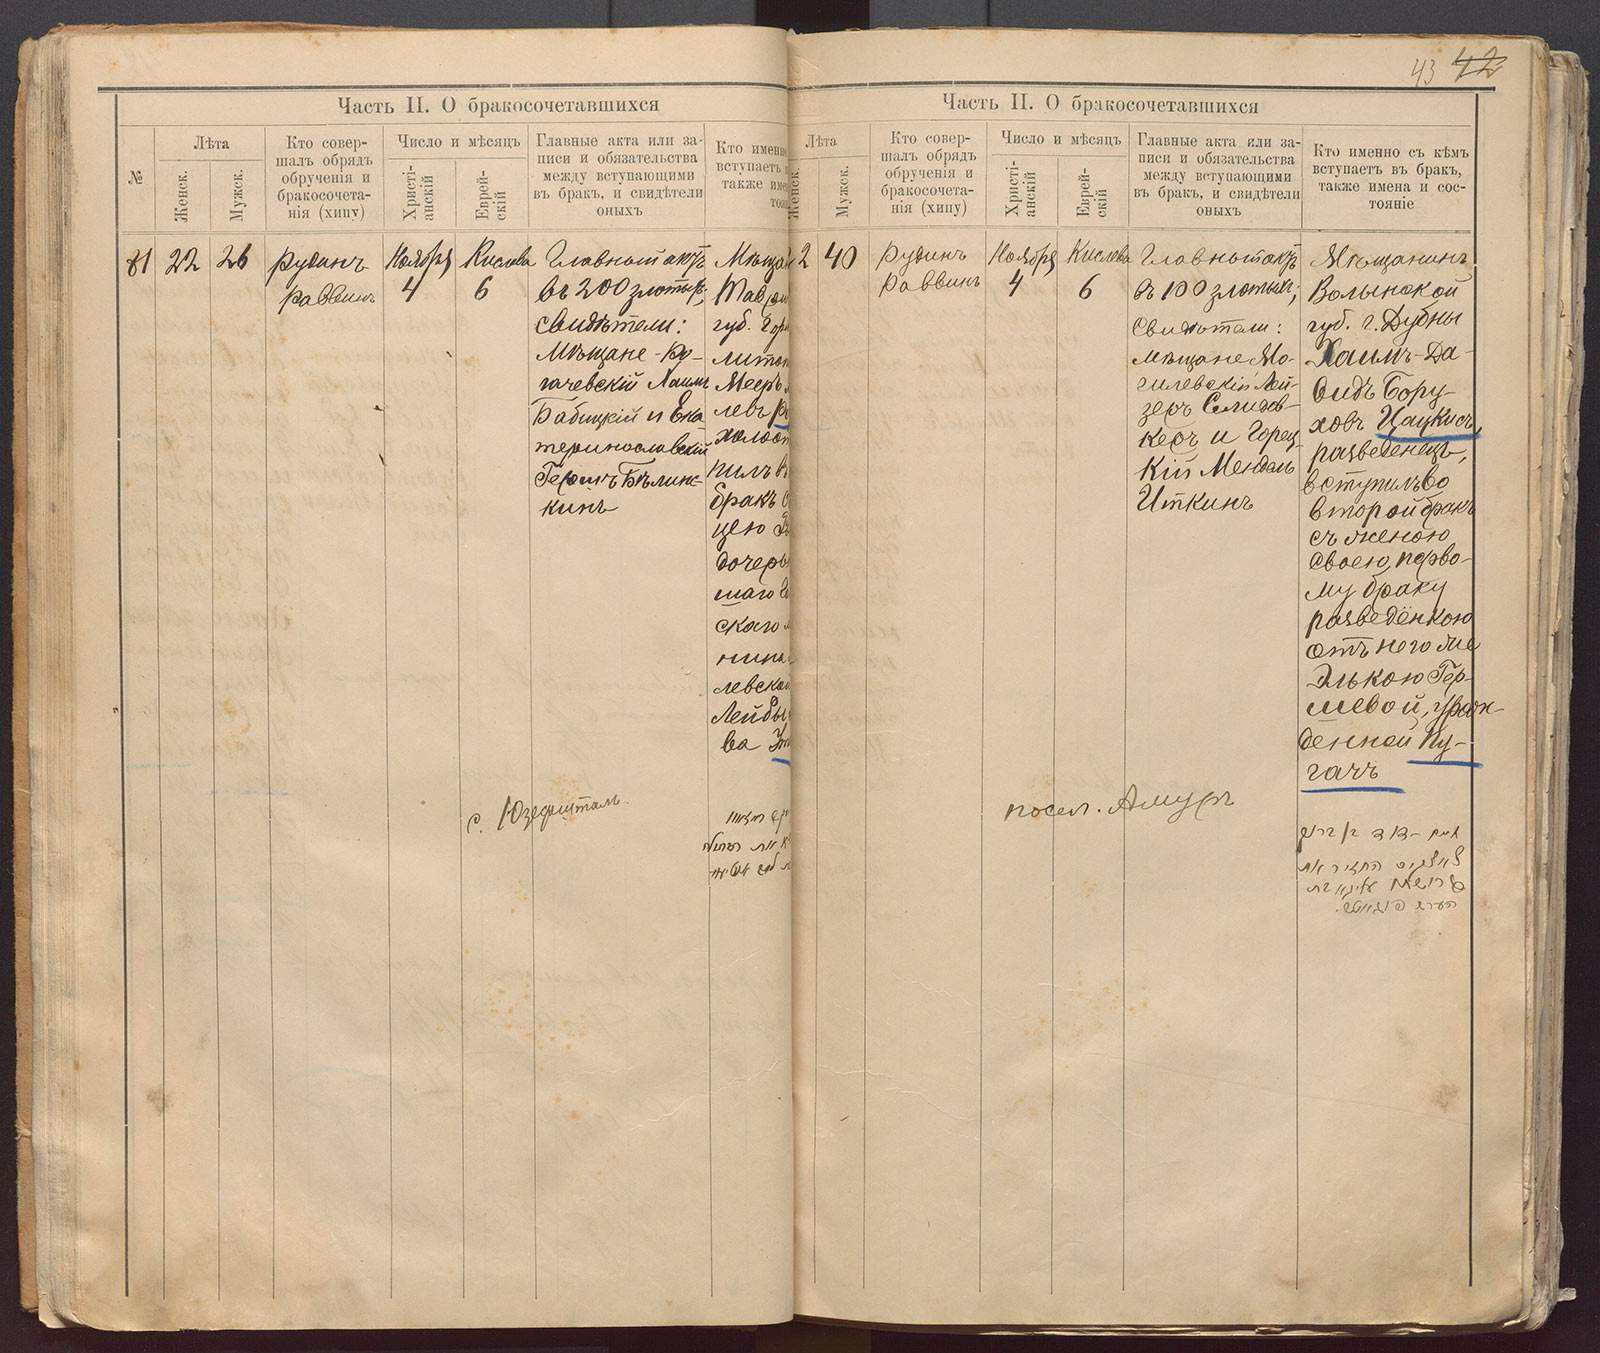 43 42
Часть II. О бракосочетавшихся
№
Лѣта
Женск.
Мужск.
Кто совер-
шалъ обрядъ
обрученія и
бракосочета-
нія (хипу)
Число и мѣсяцъ
Христі-
анскій
Еврей-
скій
Главные акта или за-
писи и обязательства
между вступающими
въ бракъ, и свидѣтели
оныхъ
Кто именно
вступаетъ
также име
тоян
81
22
26
Рудинъ
Раввинъ
Ноября
4
Кислева
6
Главный актъ
въ 200 злотых;
свидѣтели:
Мѣщане - Ро-
гачевскій Хаимъ
Бабицкій и Ека
теринославскій
Герш Бѣлин-
кинъ
Мѣщан
Тав
губ. Гор
литоп
Меер
лев
холост
пилъ в
бракъ
цею
дочерь
шаго
скаго
нина
левско
Лейбы
ва
с. Юзефшталь
Часть II. О бракосочетавшихся
Лѣта
Женск.
Мужск.
Кто совер-
шалъ обрядъ
обрученія и
бракосочета-
нія (хипу)
Число и мѣсяцъ
Христі-
анскій
Еврей-
скій
Главные акта или за-
писи и обязательства
между вступающими
въ бракъ, и свидѣтели
оныхъ
Кто именно съ кѣмъ
вступаетъ въ бракъ,
также имена и сос-
тояніе
2
40
Рудинъ
Раввинъ
Ноября
4
Кислева
6
Главный актъ
въ 100 злотых;
Свидѣтели:
мѣщане Мо-
гилевскій Лей-
зеръ Селидов-
керъ и Горец-
кій Мендель
Иткинъ
Мѣщанинъ
Волынской
губ. г. Дубны
Хаимъ-Да-
видъ Бору-
ховъ Цацкисъ,
разведенецъ,
вступилъ во
второй бракъ
съ женою
своею, перво-
му браку
разведёнкою
отъ него Ме
Элькою Гер-
шевой, урож-
денной Пу-
гачъ
посел. Амуръ
חיים - דוד בן ברוך
החזיר את